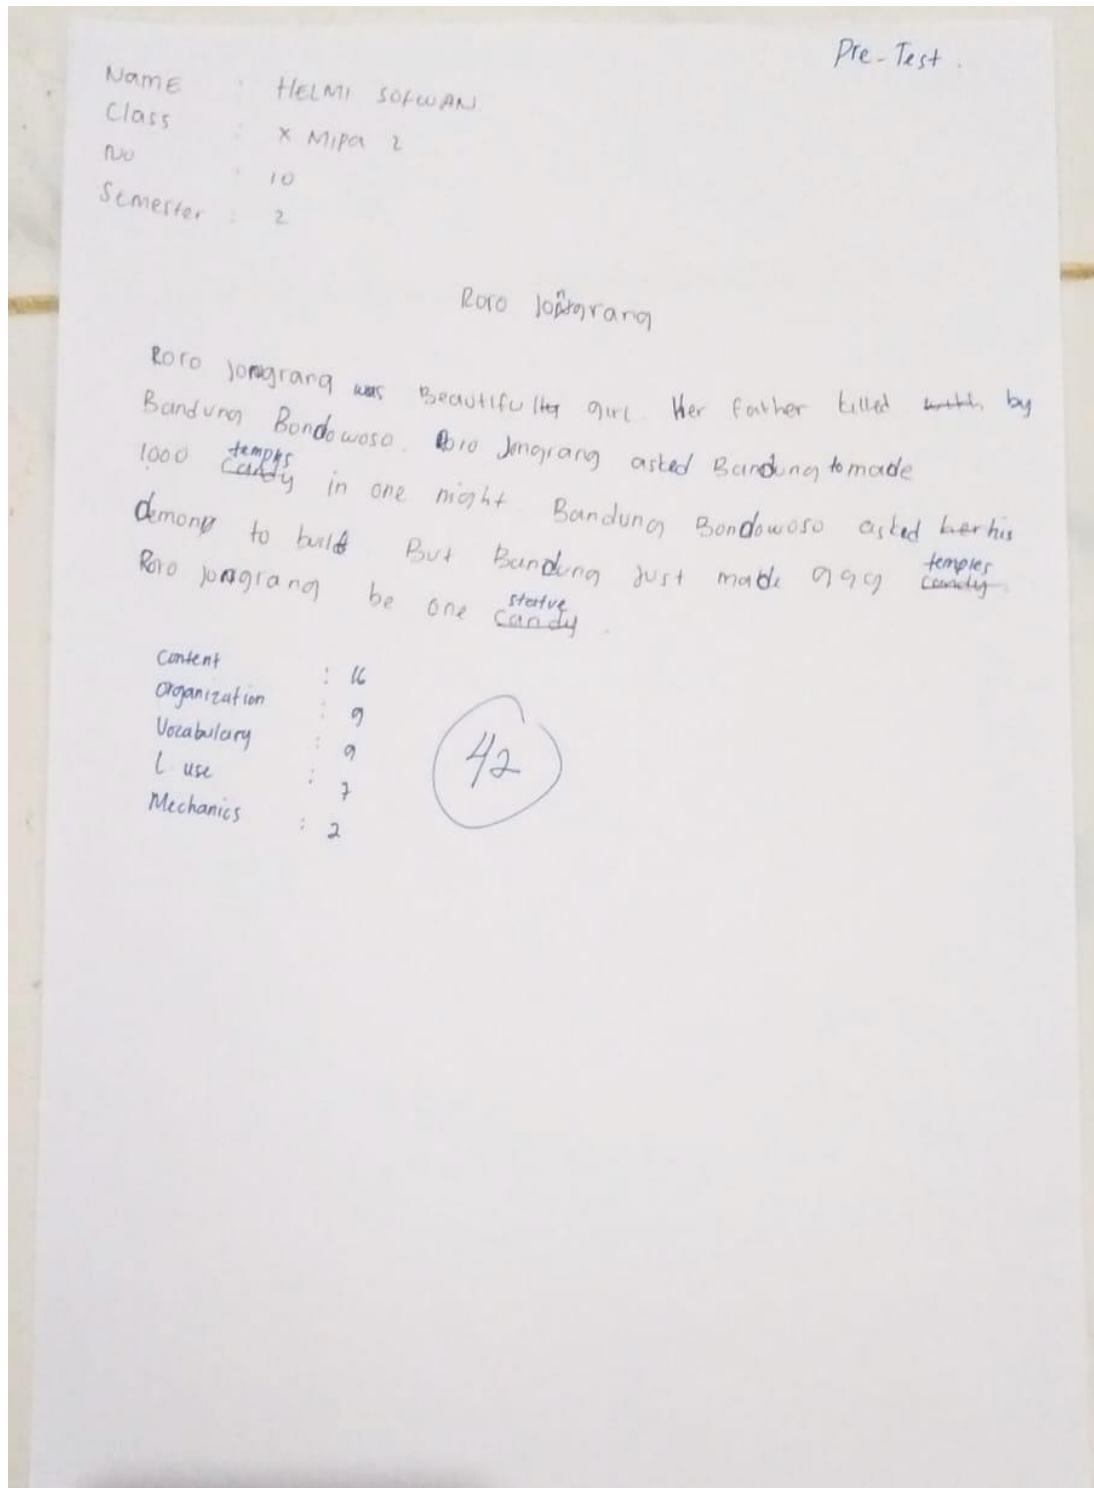 Pre-Test.
Name : HELMI SOFWAN
Class : X Mipa 2
No : 10
Semester : 2
Roro Jongrang
Roro Jongrang was Beautiful girl. Her father killed with by
Bandung Bondowoso. Roro Jongrang asked Bandung to made
temples
1000 candy in one night. Bandung Bondowoso asked her his
demong to build But Bandung Just made 999 candy
temples
Roro Jongrang be one candy.
statue
Content : 16
Organization : 9
Vocabulary : 9
L use : 7
Mechanics : 2
42